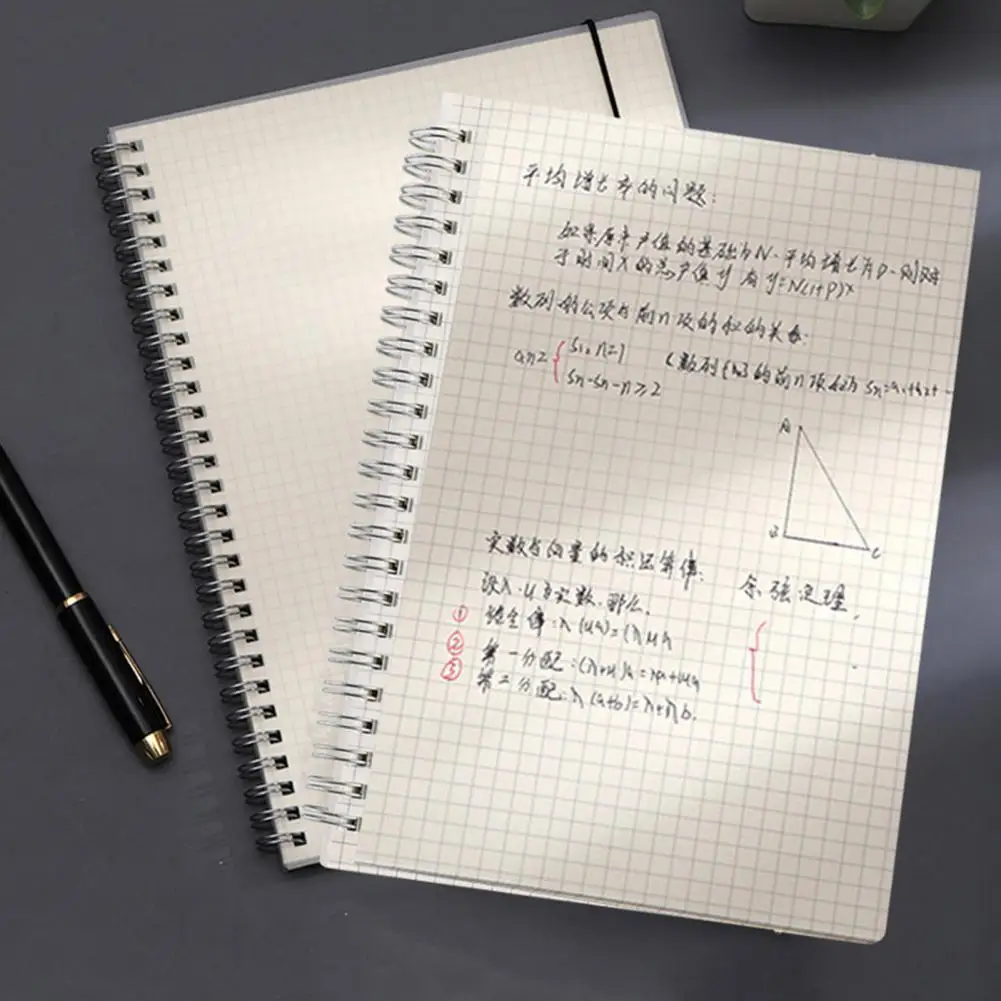 平均增长率的问题:
如果原来产值的基础为N.平均增长为P.则对
于时间X的总产值y 有y=N(1+P)x
数列的公项与前n项的和的关系:
an= { S1, n=1
Sn-Sn-n≥2
(数列{}的前n项和为 Sn=a1+a2+
A
B
C
实数与向量的积运算律:
设λ.u为实数.那么.
① 结合律:λ(ua)=(λua
② 第一分配:(λ+u)a=λa+ua
③ 第二分配:λ(a+b)=λ+λb.
余弦定理.